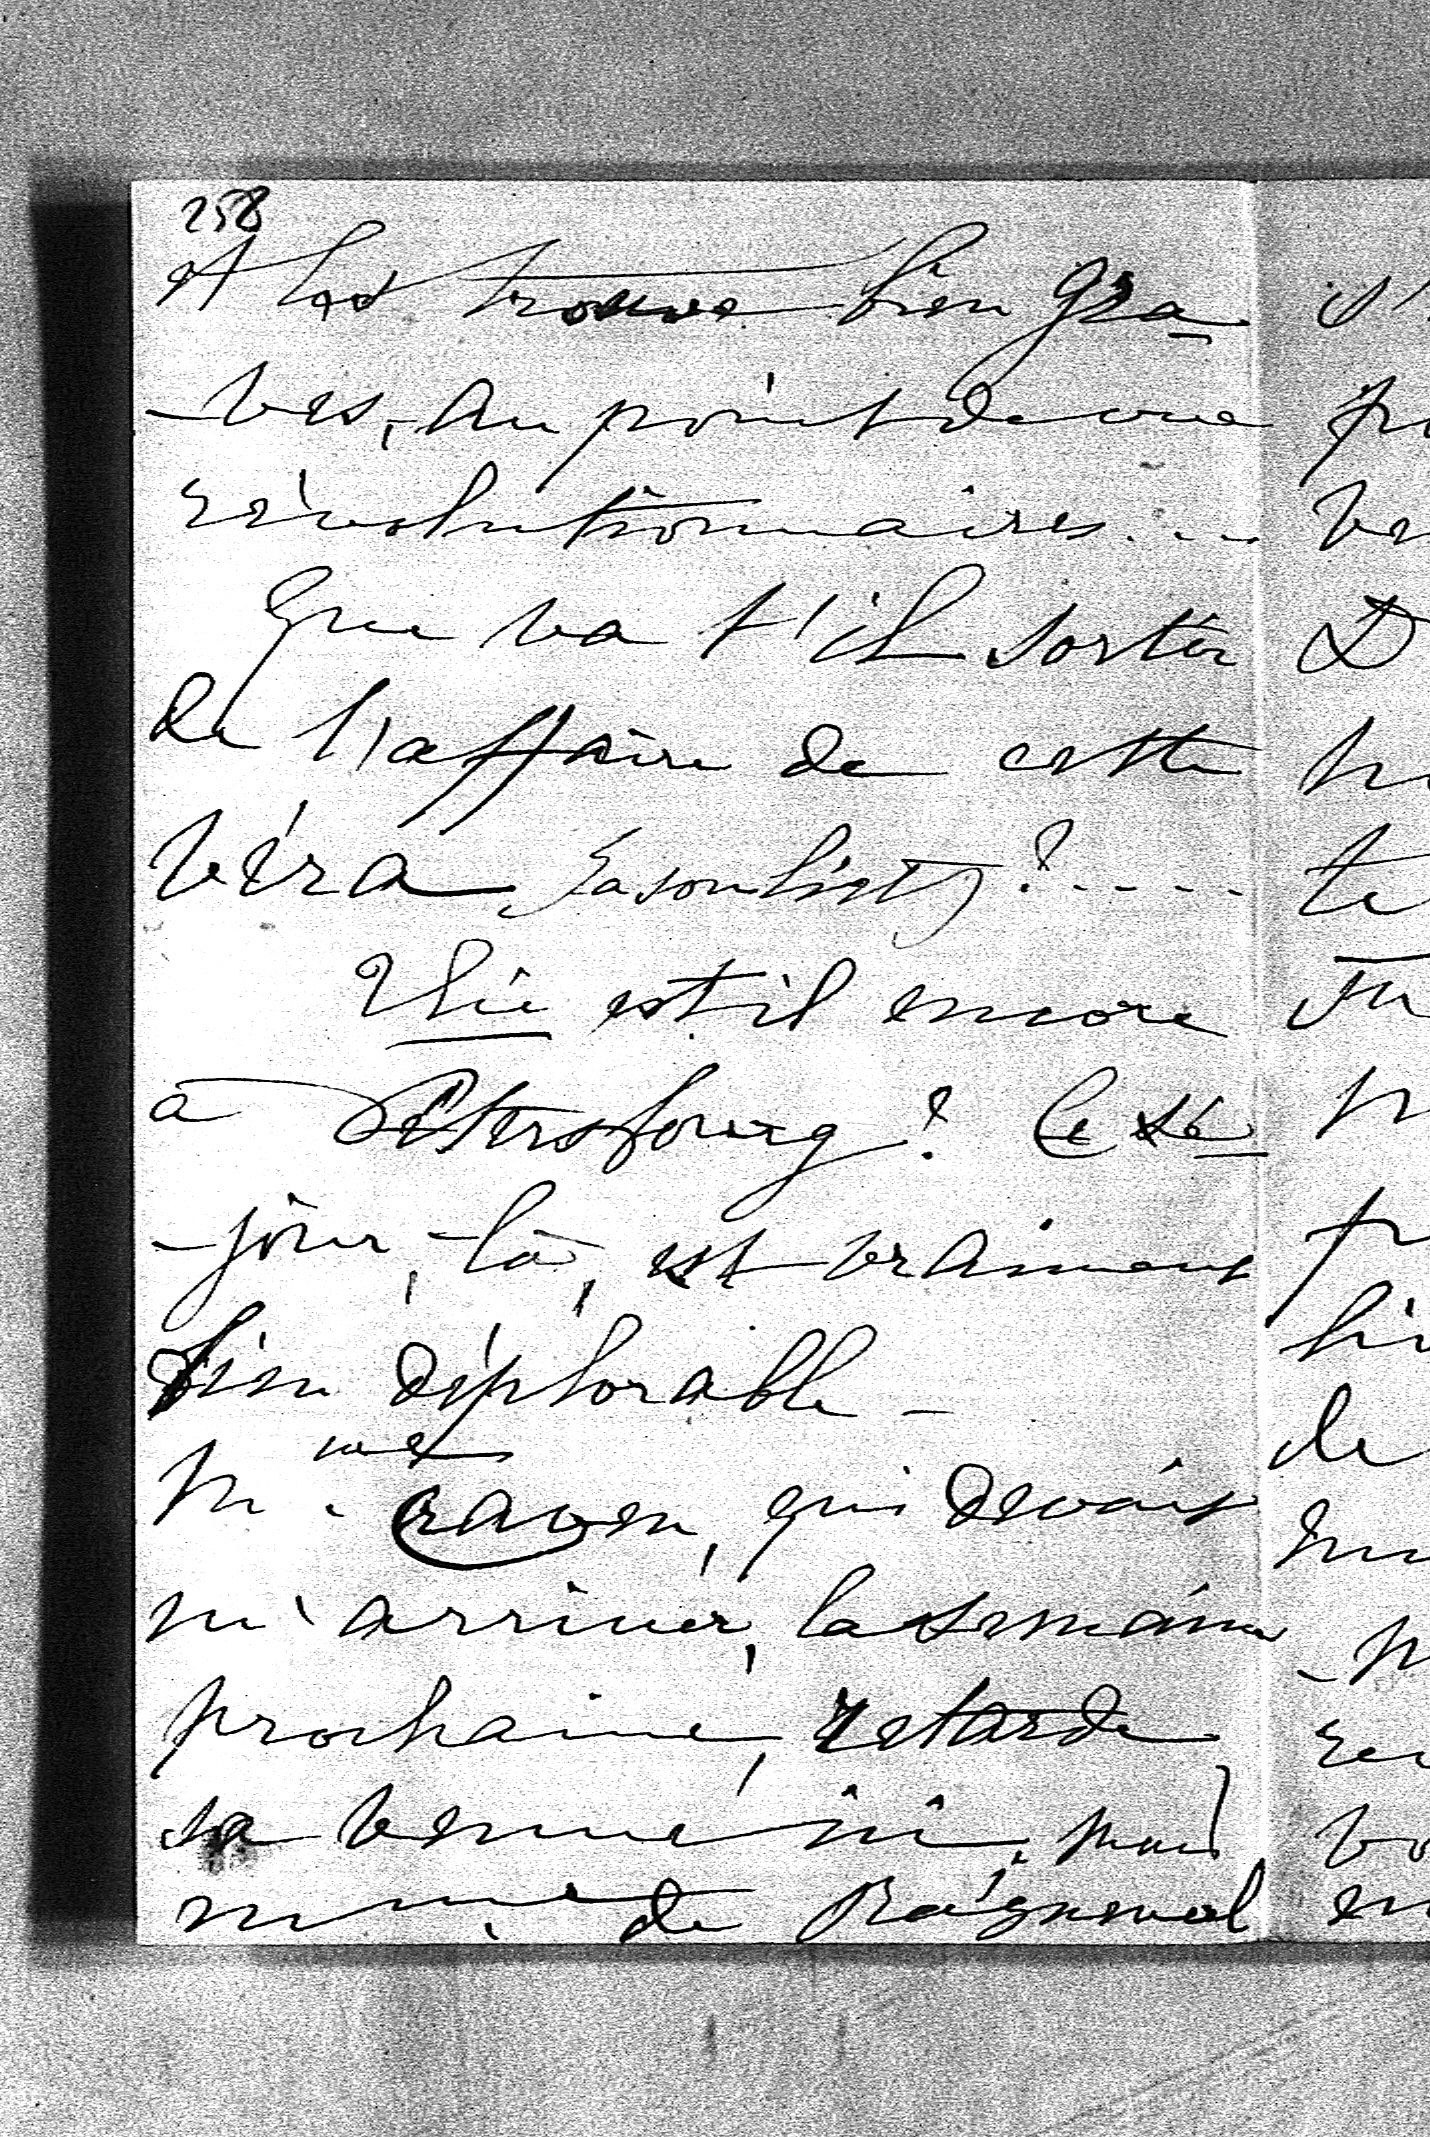 258
et les trouve bien gra-
-ves, au point de vue
révolutionnaires....
Que va t'il sortir
de l'affaire de cette
Véra Zasoulicts?.....
est il encore
à Pétersbourg? Ce sé-
-jour, -là, est vraiment
bien déplorable -
Mme. Craven, qui devait
m'arriver, la semaine
prochaine, retarde
sa venue ici, mais
mme. de Raigneval